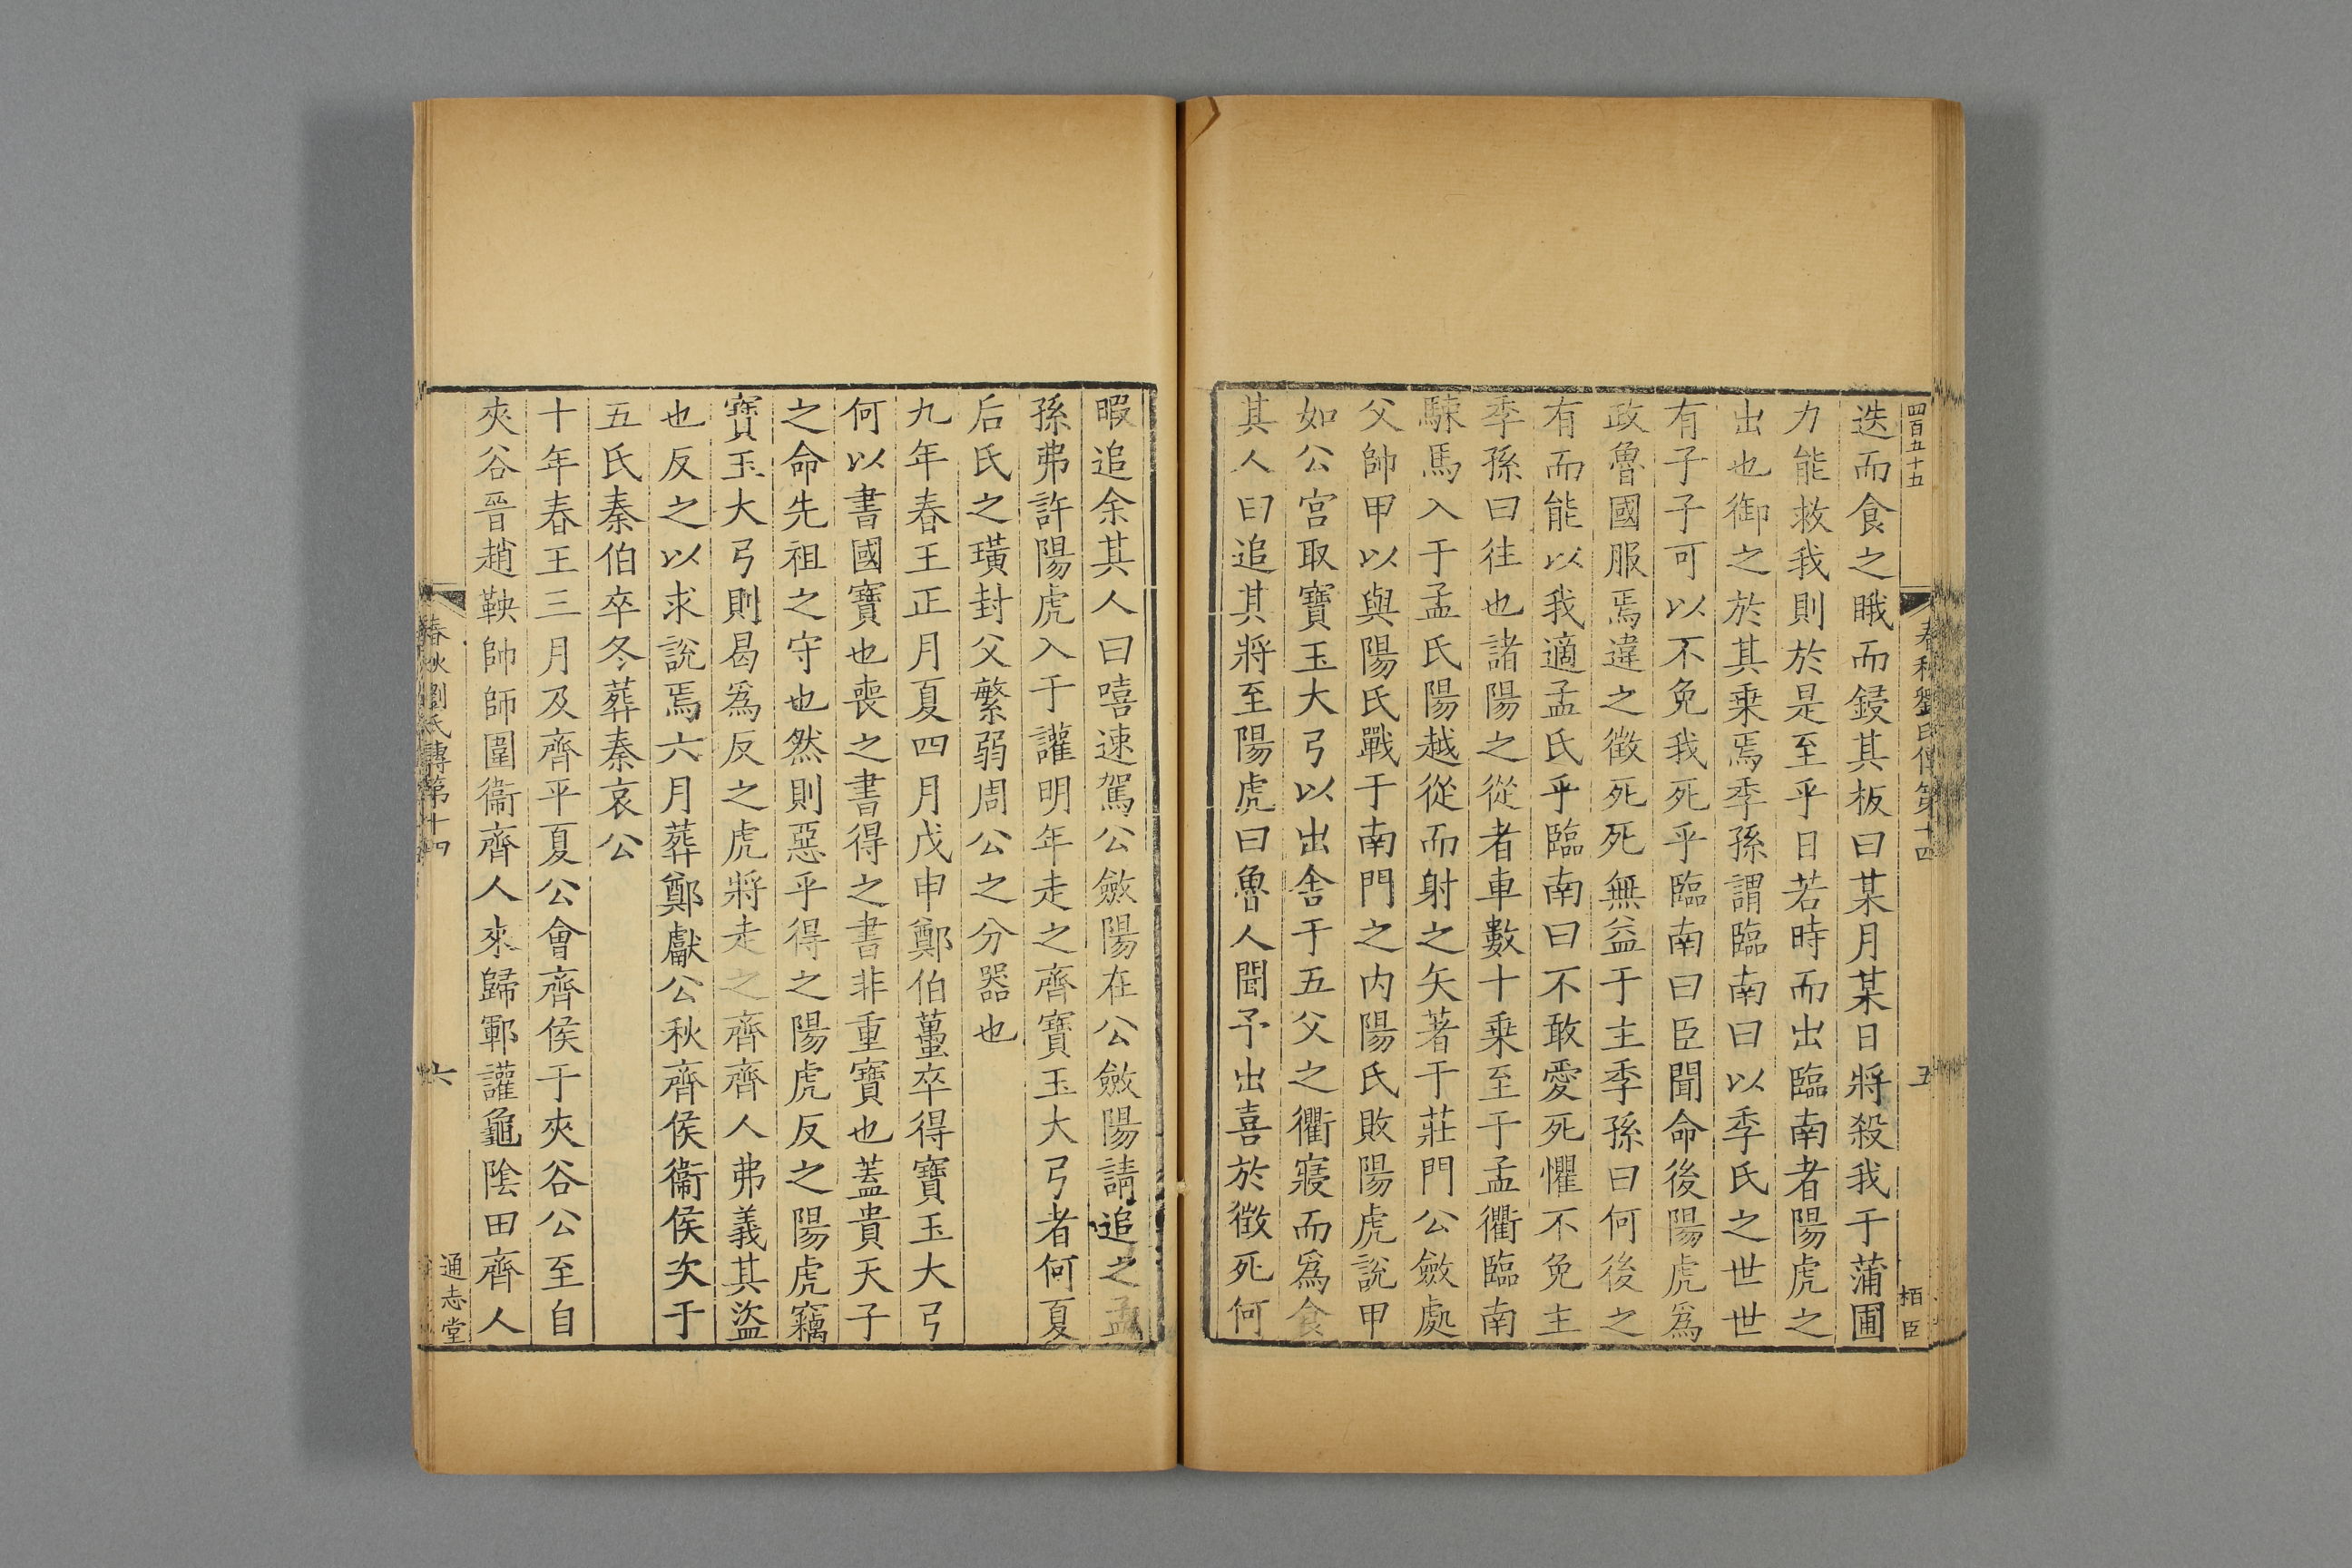 四百五十五
春秋劉氏傳第十四
五
栢臣
迭而食之睋而鋟其板曰某月某日將殺我于蒲圃
力能救我則於是至乎日若時而出臨南者陽虎之
出也御之於其乗焉季孫謂臨南曰以季氏之世世
有子子可以不免我死乎臨南曰臣聞命後陽虎爲
政魯國服焉違之徵死死無益于主季孫曰何後之
有而能以我適孟氏乎臨南曰不敢愛死懼不免主
季孫曰往也諸陽之從者車數十乗至于孟衢臨南
駷馬入于孟氏陽越從而射之矢著于莊門公斂處
父帥甲以與陽氏戰于南門之内陽氏敗陽虎說甲
如公宫取寶玉大弓以出舍于五父之衢寢而爲食
其人曰追其將至陽虎曰魯人聞予出喜於徵死何
暇追余其人曰嘻速駕公斂陽在公斂陽請追之孟
孫弗許陽虎入于讙明年走之齊寶玉大弓者何夏
后氏之璜封父繁弱周公之分器也
九年春王正月夏四月戊申鄭伯蠆卒得寶玉大弓
何以書國寶也喪之書得之書非重寶也蓋貴天子
之命先祖之守也然則惡乎得之陽虎反之陽虎竊
寶玉大弓則曷爲反之虎將走之齊齊人弗義其盜
也反之以求說焉六月葬鄭獻公秋齊侯衞侯次于
五氏秦伯卒冬葬秦哀公
十年春王三月及齊平夏公會齊侯于夾谷公至自
夾谷晉趙鞅帥師圍衞齊人來歸鄆讙龜隂田齊人
春秋劉氏傳第十四
六
通志堂